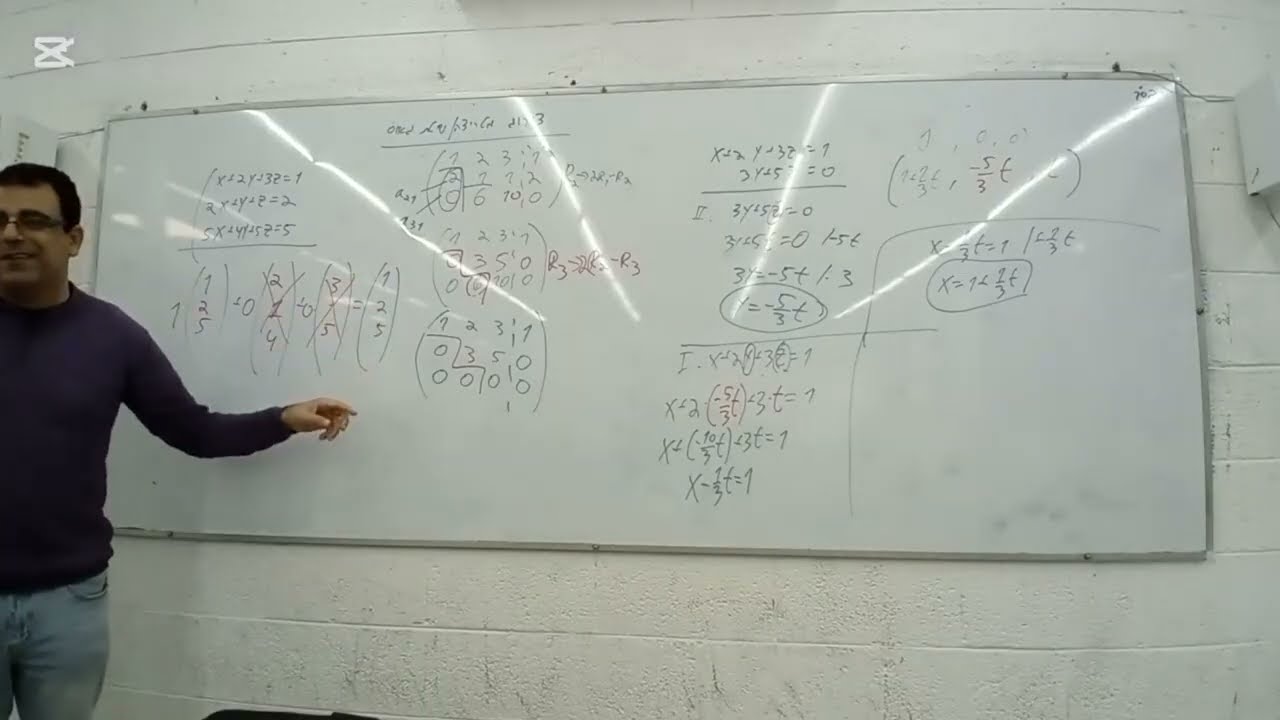 x+2y+3z=1
2x+y+z=2
5x+4y+5z=5
1 (1 2 5) +0 (2 1 4) +0 (3 1 5) = (1 2 5)
3
(1 2 3 | 1
2 1 1 | 2
0 6 10 | 0) R₂→2R₁-R₂
a₂₁
a₃₁
(1 2 3 | 1
0 3 5 | 0
0 0 0 | 0)
x+2y+3z=1
3y+5 =0
II. 3y+5z=0
3y+5t=0 /-5t
3y=-5t /:3
y=-5/3t
I. x+2y+3z=1
x+2·(-5/3t)+3·t=1
x+(-10/3t)+3t=1
x-1/3t=1
1, 0, 0
(1+1/3t, -5/3t, t)
x-1/3t=1 /+1/3t
x=1+1/3t